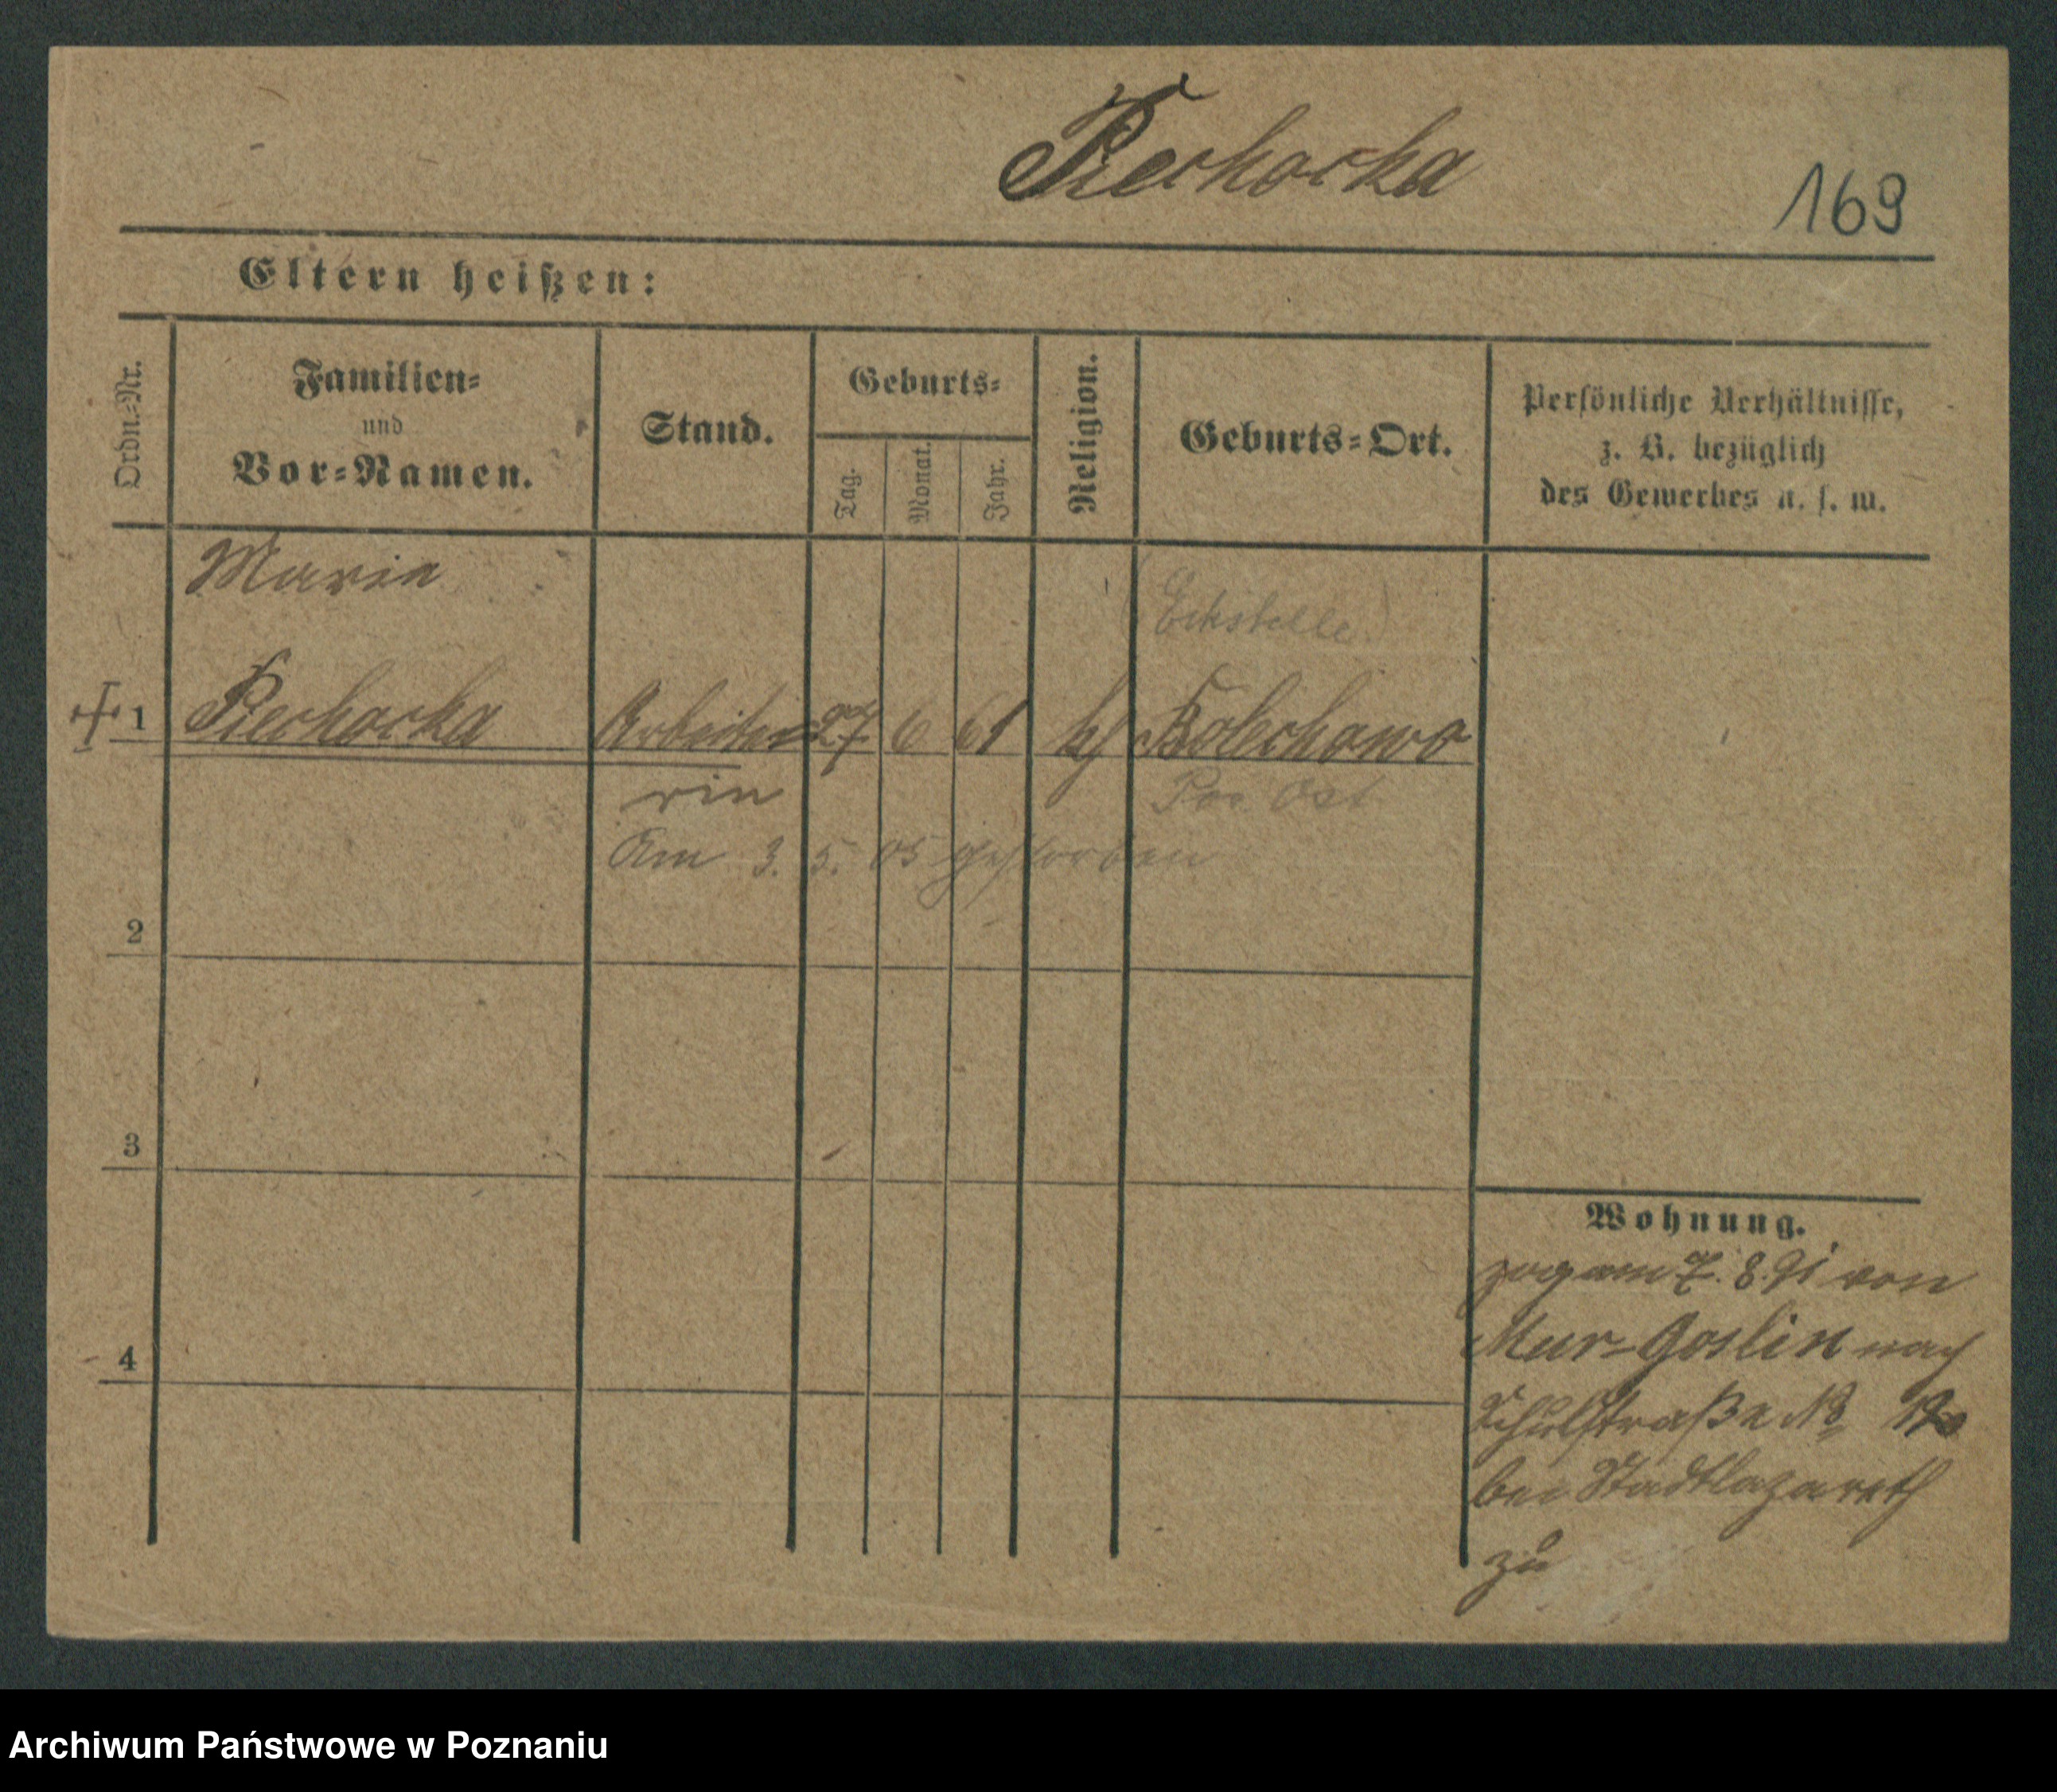 Piechocka
169
Eltern heißen:
Ordn.-Nr.
Familien-
und
Vor-Namen.
Stand.
Geburts-
Tag.
Monat.
Jahr.
Religion.
Geburts-Ort.
Persönliche Verhältnisse,
z. B. bezüglich
des Gewerbes u. s. w.
Marie
(Eckstelle)
1 Piechocka Arbeite 27 6 61 kh Bolechowo
rin Pos. Ost
Am 3. 5. 05 gestorben
2
3
4
Wohnung.
zog am 7. 8. 91 von
Mur-Goslin nach
Schulstraße No
bei Stadtlazareth
zu
Archiwum Państwowe w Poznaniu